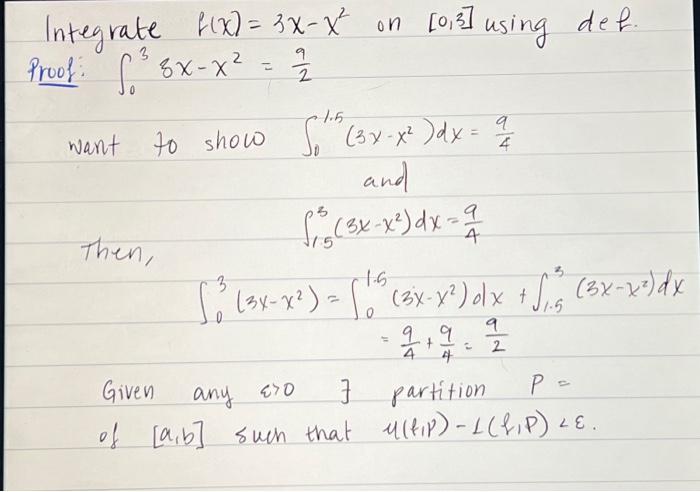 Integrate f(x) = 3x - x² on [0,3] using def.
Proof: ∫₀³ 3x - x² = 9/2
want to show ∫₀^1.5 (3x - x²)dx = 9/4
and
∫₁.₅³ (3x - x²)dx = 9/4
Then,
∫₀³ (3x - x²) = ∫₀^1.5 (3x - x²)dx + ∫₁.₅³ (3x - x²)dx
= 9/4 + 9/4 = 9/2
Given any ε>0 ∃ partition P =
of [a,b] such that U(f,P) - L(f,P) < ε.